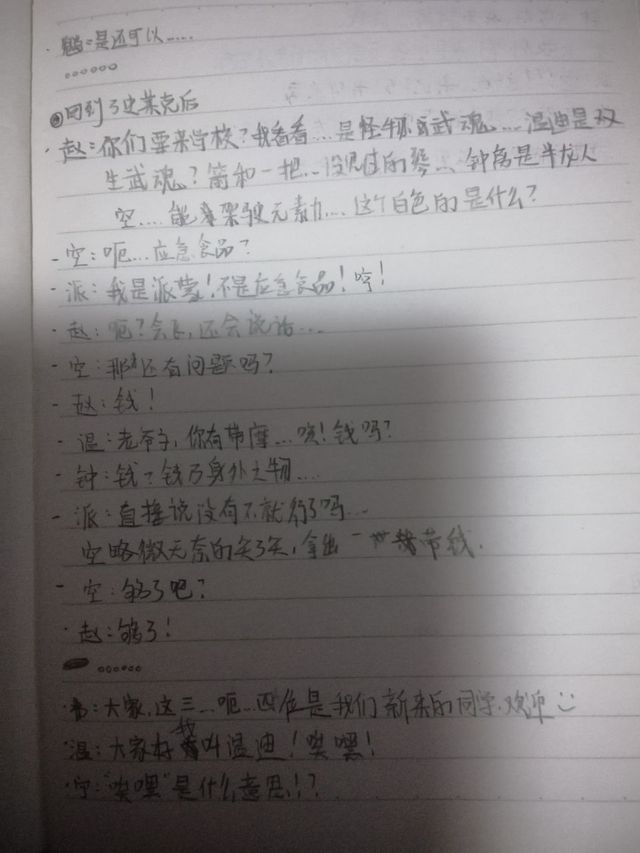 ·魈：是还可以……
。。。。。。
◉回到了史莱克后
·赵：你们要来学校？我看看…是怪物武魂……温迪是双
生武魂？笛和一把…没见过的琴… 钟离是半龙人
空……能驾驶元素力…. 这个白色的是什么？
-空：呃…应急食品？
-派：我是派蒙！不是应急食品！哼！
·赵：呃？会飞，还会说话…
-空：那还有问题吗？
-赵：钱！
-温：老爷子，你有带摩…唉！钱吗？
-钟：钱？钱乃身外之物….
-派：直接说没有不就行了吗…
空略微无奈的笑了笑，拿出一带钱.
-空：够了吧？
·赵：够了！
。。。。。。
大家，这三…呃…四位是我们新来的同学，欢迎
·温：大家好我叫温迪！哎嘿！
·空：“哎嘿”是什么意思！？